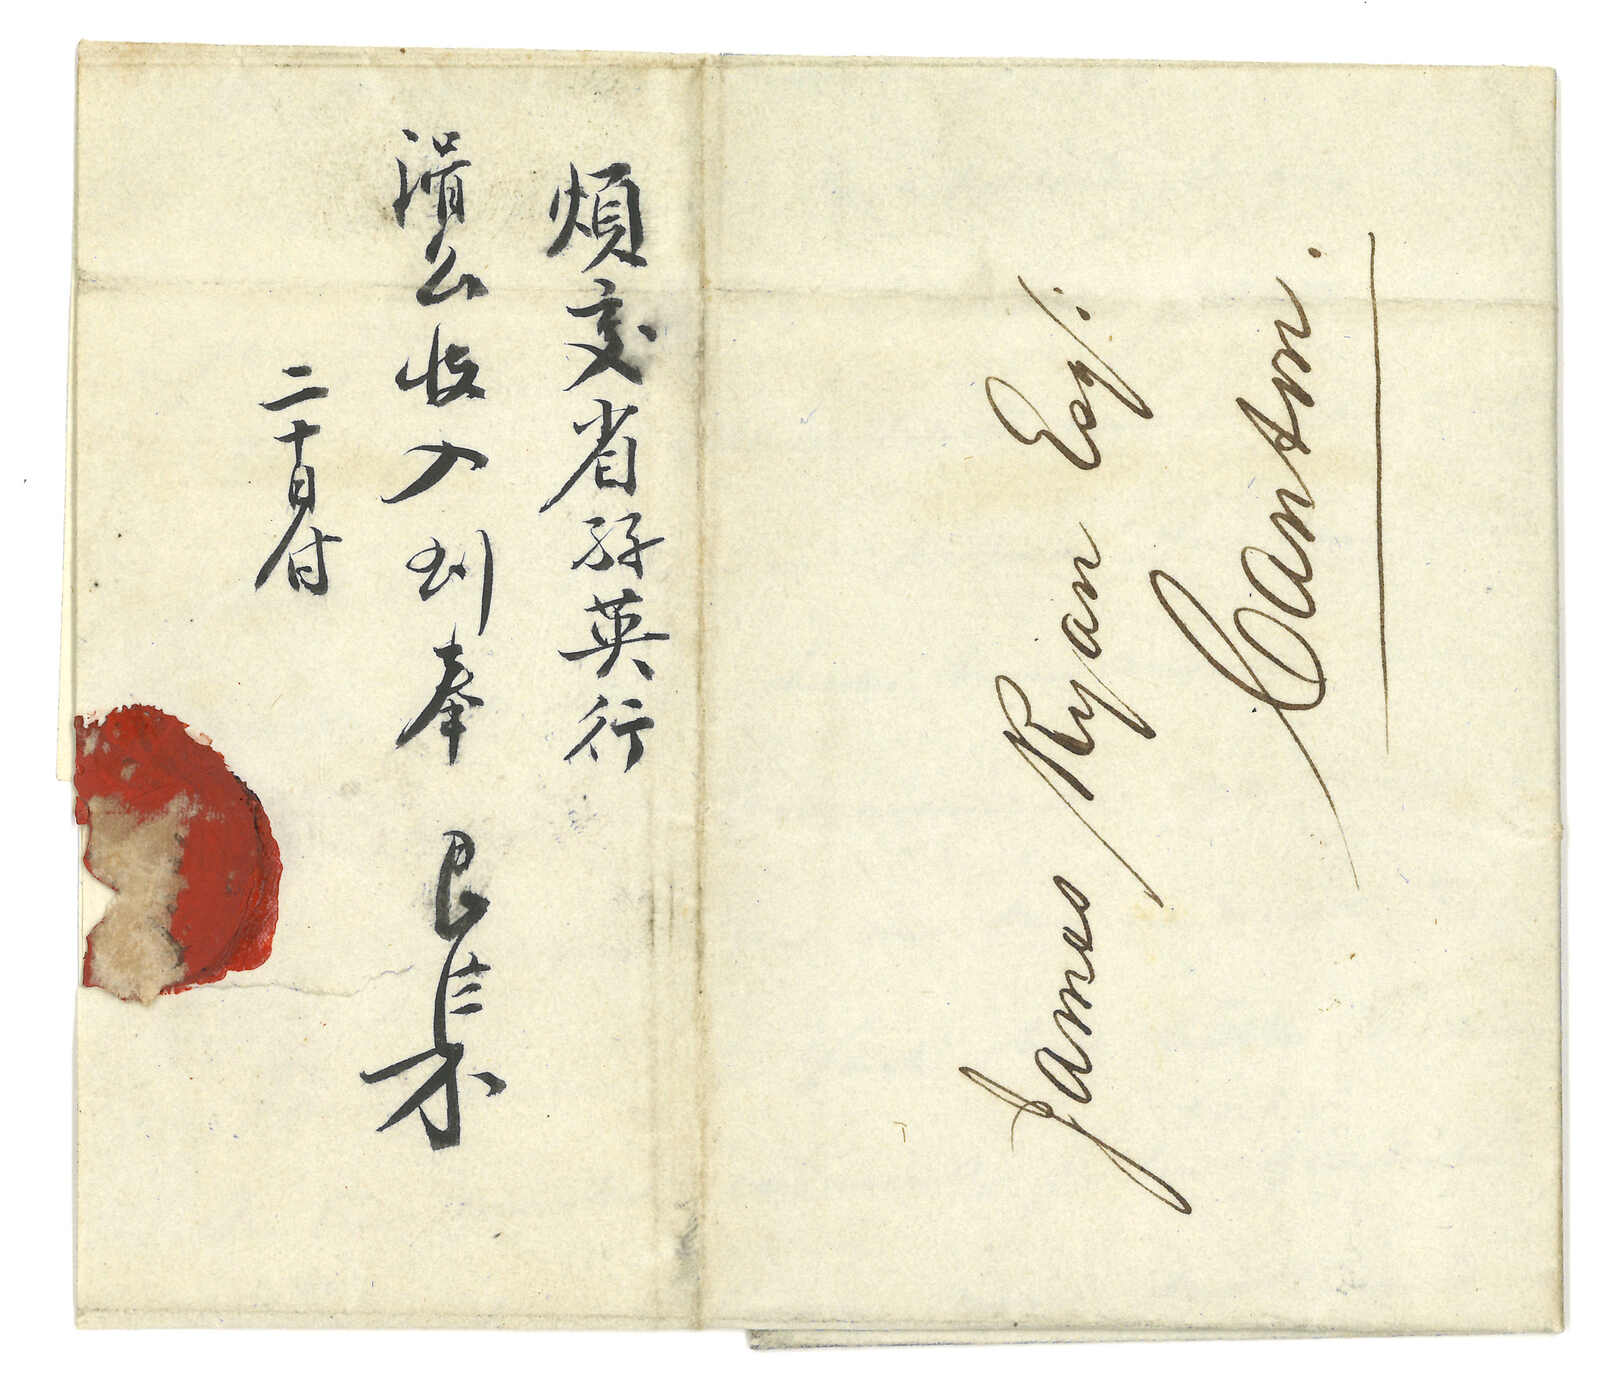 煩交省孖英行
渭公收入到奉
二十日付
James Ryan Esq:
Canton.